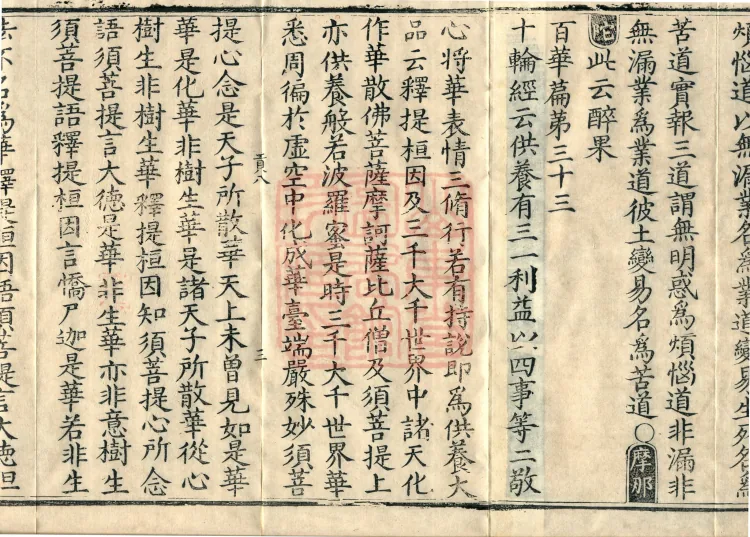 煩惱道以無漏業名爲業道變易生死名爲
苦道實報三道謂無明惑爲煩惱道非漏非
無漏業爲業道彼土變易名爲苦道○摩那
此云醉果
百華篇第三十三
十輪經云供養有三一利益以四事等二敬
心將華表情三脩行若有持說即爲供養大
品云釋提桓因及三千大千世界中諸天化
作華散佛菩薩摩訶薩比丘僧及須菩提上
亦供養般若波羅蜜是時三千大千世界華
悉周徧於虛空中化成華臺端嚴殊妙須菩
三
提心念是天子所散華天上未曾見如是華
華是化華非樹生華是諸天子所散華從心
樹生非樹生華釋提桓因知須菩提心所念
語須菩提言大德是華非生華亦非意樹生
須菩提語釋提桓因言憍尸迦是華若非生
法不名爲華釋提桓因語須菩提言大德但